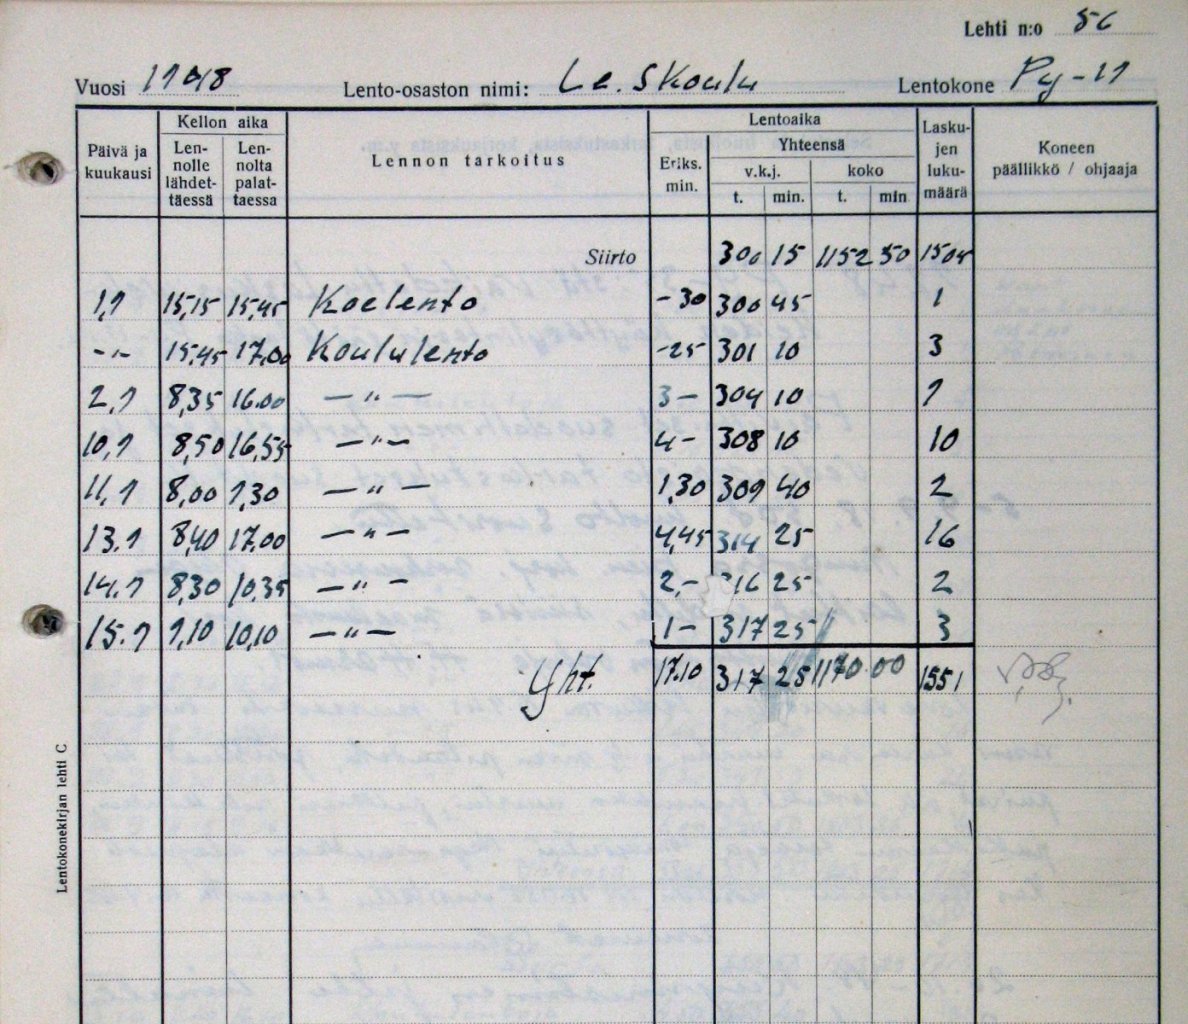 Lehti n:o 56
Vuosi 1948 Lento-osaston nimi: Le.SKoulu Lentokone Py-11
Päivä ja kuukausi
Kellon aika
Lennolle lähdettäessä
Lennolta palattaessa
Lennon tarkoitus
Lentoaika
Eriks. min.
Yhteensä
v.k.j. koko
t. min. t. min
Laskujen lukumäärä
Koneen päällikkö / ohjaaja
Siirto 300 15 1152 50 1505
1,9 15,15 15,45 Koelento -30 300 45 1
-"- 15.45 17,00 Koululento -25 301 10 3
2,9 8,35 16.00 -"- 3- 304 10 9
10,9 8,50 16,55 -"- 4- 308 10 10
11,9 8,00 9,30 -"- 1,30 309 40 2
13.9 8,40 17,00 -"- 4,45 314 25 16
14.9 8,30 10,35 -"- 2,- 316 25 2
15.9 9,10 10,10 -"- 1- 317 25 3
Yht. 17.10 317 25 1170.00 1551
Lentokonekirjan lehti C